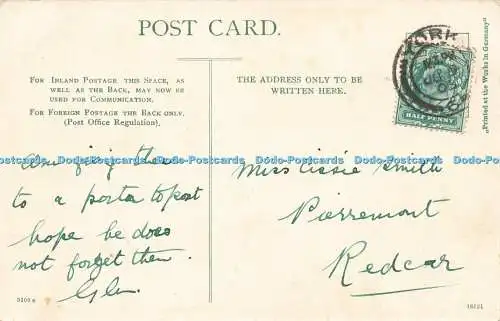 POST CARD.
FOR INLAND POSTAGE THIS SPACE, AS
WELL AS THE BACK, MAY NOW BE
USED FOR COMMUNICATION.
FOR FOREIGN POSTAGE THE BACK ONLY.
(Post Office Regulation).
THE ADDRESS ONLY TO BE
WRITTEN HERE.
YORK
HALF PENNY
"Printed at the Works in Germany"
Dodo-Postcards Dodo-Postcards Dodo-Postcards Dodo-Postcards Dodo-Postcards
Am giving them
to a porter to post
hope he does
not forget them.
Glen
Miss Cissie Smith
Pierremont
Redcar